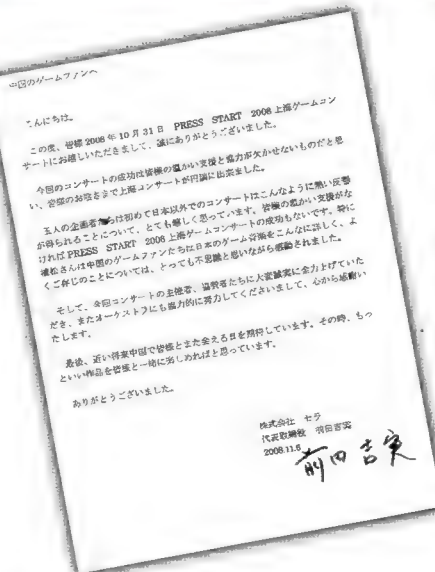 中国のゲームファンへ
こんにちは。
この度、皆様 2008 年 10 月 31 日 PRESS START 2008 上海ゲームコン
サートにお越しいただきまして、誠にありがとうございました。
今回のコンサートの成功は皆様の温かい支援と協力が欠かせないものだと思
い、皆様のお蔭さまで上海コンサートが円満に出来ました。
五人の企画者らは初めて日本以外でのコンサートはこんなように熱い反響
が得られることについて、とても嬉しく思っています。皆様の温かい支援がな
ければ PRESS START 2008 上海ゲームコンサートの成功もないです。特に
植松さんは中国のゲームファンたちは日本のゲーム音楽をこんなに詳しく、よ
くご存じのことについては、とっても不思議と思いながら感動されました。
そして、今回コンサートの主催者、協賛者たちに大変誠実に全力上げていた
だき、またオーケストラにも協力的に努力してくださいまして、心から感謝い
たします。
最後、近い将来中国で皆様とまた会える日を期待しています。その時、もっ
といい作品を皆様と一緒に楽しめればと思っています。
ありがとうございました。
株式会社 セラ
代表取締役 前田吉実
2008.11.6
前田吉実